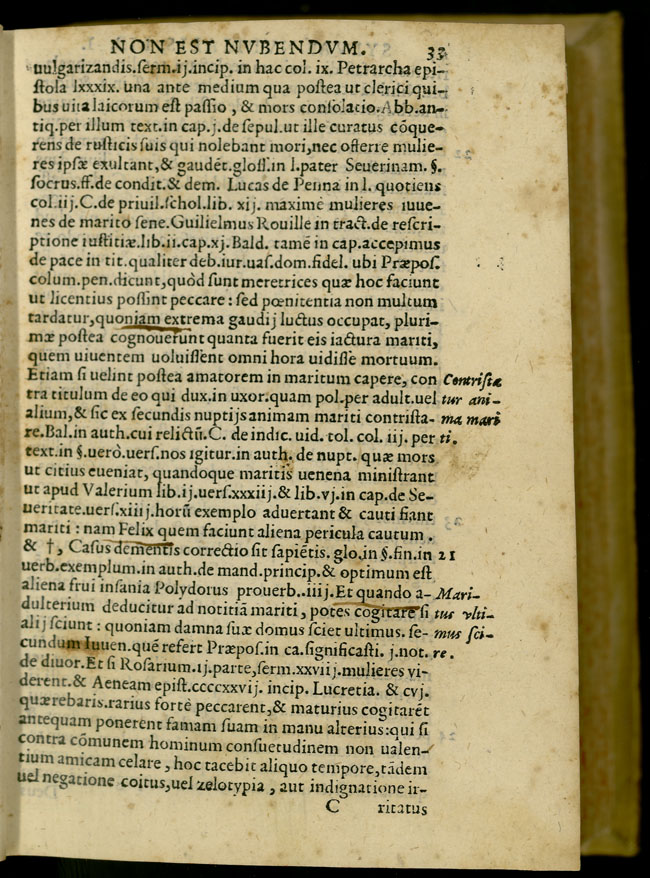 NON EST NVBENDVM. 33
uulgarizandis.serm.ij.incip. in hac col. ix. Petrarcha epi-
stola lxxxix. una ante medium qua postea ut clerici qui-
bus uita laicorum est passio, & mors consolacio. Abb.an-
tiq.per illum text.in cap.j.de sepul.ut ille curatus cōque-
rens de rusticis suis qui nolebant mori,nec offerre mulie-
res ipsæ exultant,& gaudēt.gloss.in l.pater Seuerinam. §.
socrus.ff.de condit.& dem. Lucas de Penna in l. quotiens
col.iij.C.de priuil.schol.lib. xij. maximè mulieres iuue-
nes de marito sene.Guilielmus Rouille in tract.de rescri-
ptione iustitiæ.lib.ii.cap.xj.Bald. tamē in cap.accepimus
de pace in tit.qualiter deb.iur.uas.dom.fidel. ubi Præpos.
colum.pen.dicunt,quòd sunt meretrices quæ hoc faciunt
ut licentius possint peccare: sed pœnitentia non multum
tardatur,quoniam extrema gaudij luctus occupat, pluri-
mæ postea cognouerunt quanta fuerit eis iactura mariti,
quem uiuentem uoluissent omni hora uidisse mortuum.
Etiam si uelint postea amatorem in maritum capere, con
tra titulum de eo qui dux.in uxor.quam pol.per adult.uel
alium,& sic ex secundis nuptijs animam mariti contrista-
re.Bal.in auth.cui relictū.C. de indic. uid. tol. col. iij. per
Contrista
tur ani-
ma mari
ti.
text.in §.uerò.uers.nos igitur.in auth. de nupt. quæ mors
ut citius eueniat, quandoque maritis uenena ministrant
ut apud Valerium lib.ij.uers.xxxiij.& lib.vj.in cap.de Se-
ueritate.uers.xiiij.horū exemplo aduertant & cauti fiant
mariti: nam Felix quem faciunt aliena pericula cautum.
& †, Casus dementis correctio fit sapiētis. glo.in §.fin.in 21
uerb.exemplum.in auth.de mand.princip.& optimum est
aliena frui insania Polydorus prouerb..iij.Et quando a-
dulterium deducitur ad notitiā mariti, potes cogitare si
alij sciunt: quoniam damna suæ domus sciet ultimus. se-
cundum Iuuen.quē refert Præpos.in ca.significasti. j.not.
Mari-
tus vlti-
mus sci-
re.
de diuor.Et si Rosarium.ij.parte,serm.xxvij.mulieres vi-
derent.& Aeneam epist.ccccxxvij. incip. Lucretia. & cvj.
quærebaris.rarius fortè peccarent,& maturius cogitarēt
antequam ponerent famam suam in manu alterius:qui si
contra cōmunem hominum consuetudinem non ualen-
tium amicam celare, hoc tacebit aliquo tempore,tādem
uel negatione coitus,uel zelotypia, aut indignatione ir-
C ritatus